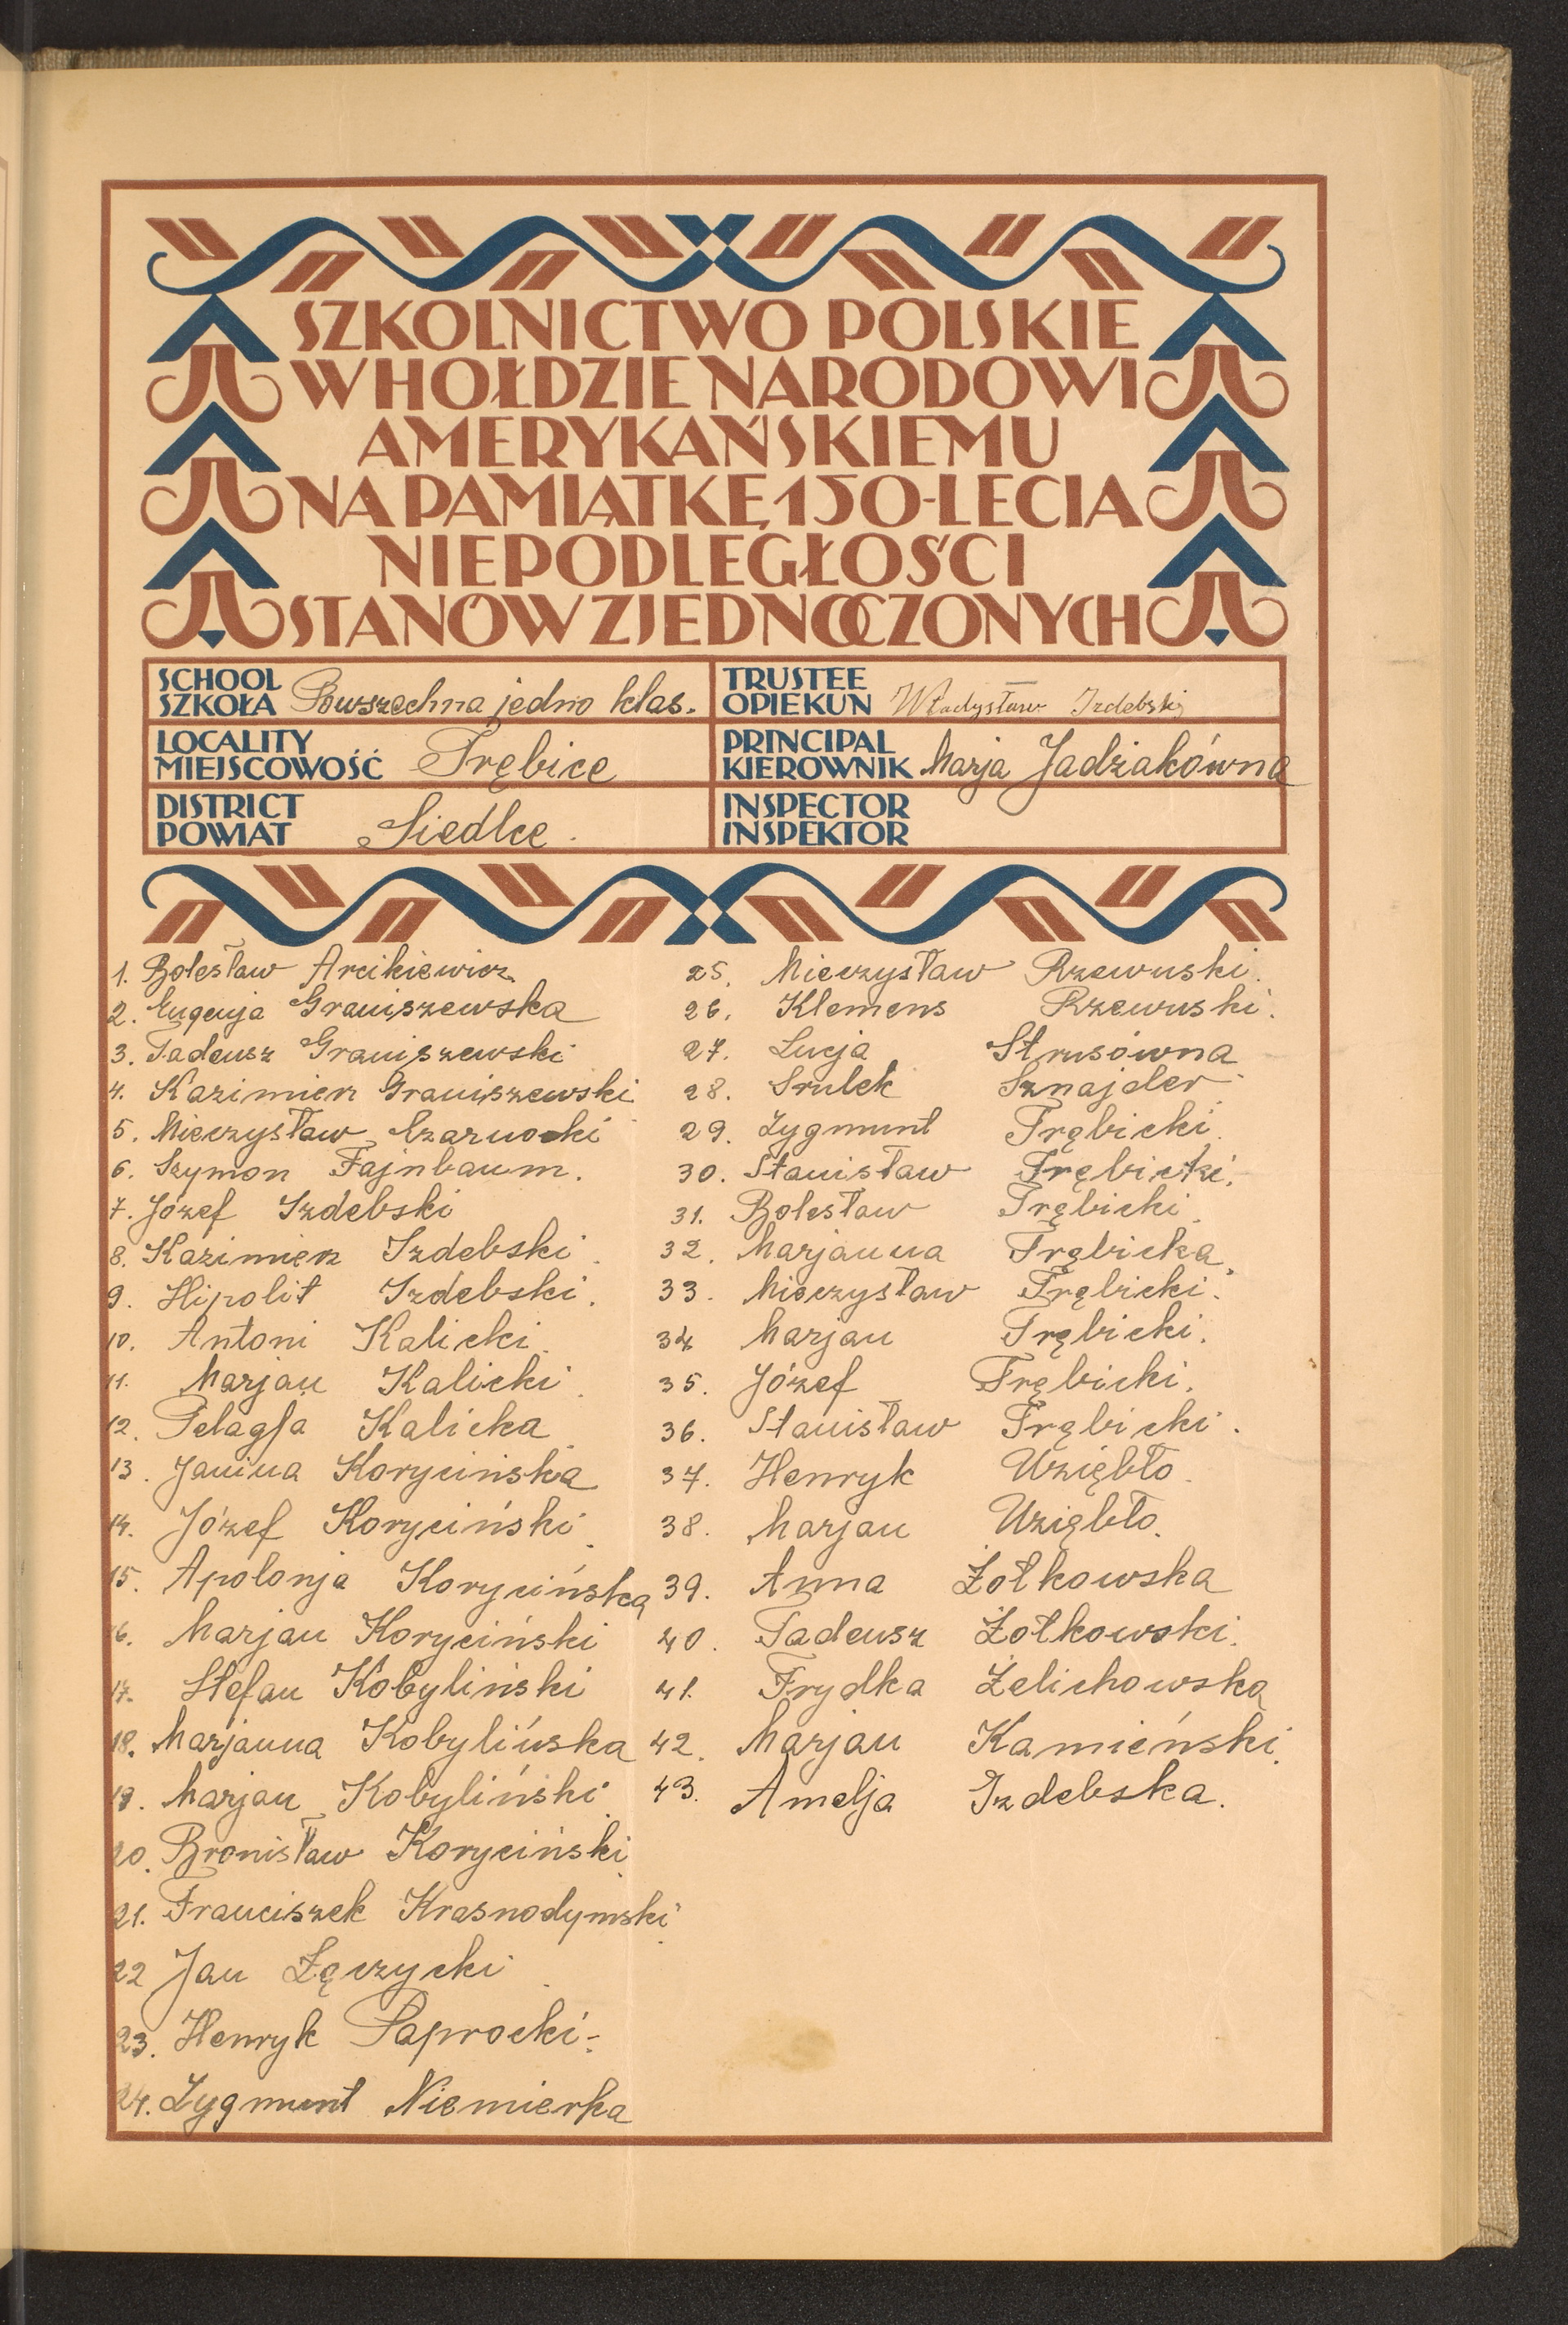 SZKOLNICTWO POLSKIE
W HOŁDZIE NARODOWI
AMERYKAŃSKIEMU
NA PAMIĄTKĘ 150-LECIA
NIEPODLEGŁOŚCI
STANÓW ZJEDNOCZONYCH
SCHOOL
SZKOŁA Powszechna jedno klas.
LOCALITY
MIEJSCOWOŚĆ Trębice
DISTRICT
POWIAT Siedlce.
TRUSTEE
OPIEKUN Władysław Izdebski
PRINCIPAL
KIEROWNIK Marja Jadżiakówna
INSPECTOR
INSPEKTOR
1. Bolesław Arcikiewicz
2. Eugenja Graniszewska
3. Tadeusz Graniszewski
4. Kazimierz Graniszewski
5. Mieczysław Czarnocki
6. Szymon Fajnbaum.
7. Józef Izdebski
8. Kazimierz Izdebski.
9. Hipolit Izdebski.
10. Antoni Kalicki.
11. Marjan Kalicki.
12. Pelagja Kalicka
13. Janina Korycińska
14. Józef Koryciński.
15. Apolonja Korycińska
16. Marjan Koryciński
17. Stefan Kobyliński
18. Marjanna Kobylińska
19. Marjan Kobyliński.
20. Bronisław Koryciński.
21. Franciszek Krasnodymski.
22 Jan Łęczycki.
23. Henryk Paprocki.
24. Zygmunt Niemierka
25. Mieczysław Rzewuski.
26. Klemens Rzewuski.
27. Lucja Strusówna
28. Srulek Sznajder.
29. Zygmunt Trębicki.
30. Stanisław Trębicki.
31. Bolesław Trębicki.
32. Marjanna Trębicka.
33. Mieczysław Trębicki.
34 Marjan Trębicki.
35. Józef Trębicki.
36. Stanisław Trębicki.
37. Henryk Uziębło.
38. Marjan Uziębło.
39. Anna Żołkowska
40. Tadeusz Żołkowski.
41. Frydka Żelichowska
42. Marjan Kamieński.
43. Amelja Izdebska.